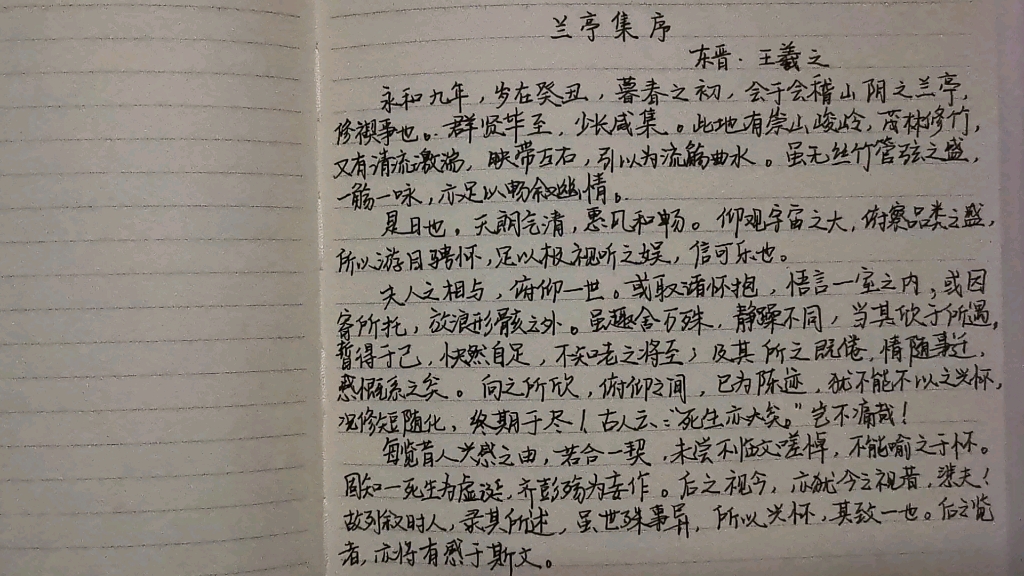 兰亭集序
东晋·王羲之
永和九年，岁在癸丑，暮春之初，会于会稽山阴之兰亭，
修禊事也。群贤毕至，少长咸集。此地有崇山峻岭，茂林修竹，
又有清流激湍，映带左右，引以为流觞曲水。虽无丝竹管弦之盛，
一觞一咏，亦足以畅叙幽情。
是日也。天朗气清，惠风和畅。仰观宇宙之大，俯察品类之盛，
所以游目骋怀，足以极视听之娱，信可乐也。
夫人之相与，俯仰一世。或取诸怀抱，悟言一室之内，或因
寄所托，放浪形骸之外。虽趣舍万殊，静躁不同，当其欣于所遇，
暂得于己，快然自足，不知老之将至；及其所之既倦，情随事迁，
感慨系之矣。向之所欣，俯仰之间，已为陈迹，犹不能不以之兴怀，
况修短随化，终期于尽！古人云：“死生亦大矣。”岂不痛哉！
每览昔人兴感之由，若合一契，未尝不临文嗟悼，不能喻之于怀。
固知一死生为虚诞，齐彭殇为妄作。后之视今，亦犹今之视昔，悲夫！
故列叙时人，录其所述，虽世殊事异，所以兴怀，其致一也。后之览
者，亦将有感于斯文。